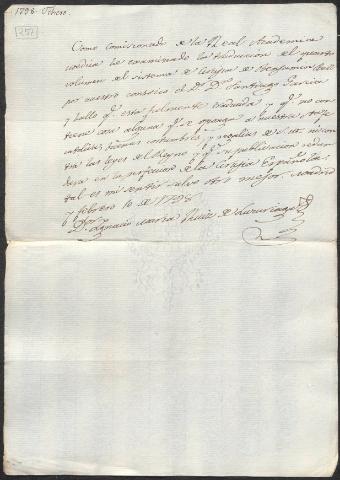 1798. Febrero.
251
Como comisionado de la Real Academia
medica he examinado la traduccion del quarto
volumen del sistema de Cirugia de Benjamin Bell
por nuestro consocio el Dr. Dn. Santiago Garcia
y hallo qe. está fielmente traducida y qe. no con-
tiene cosa alguna qe. se oponga a nuestra Fe
catolica, buenas costumbres, y regalias de S.M. ni con-
tra las leyes del Reyno y qe. su publicacion redun-
dara en la perfeccion de la Cirugia Española.
tal es mi sentir salvo otro mejor. Madrid
y febrero 10 de 1798
Dr. Ignacio Maria Ruiz de Luzuriaga